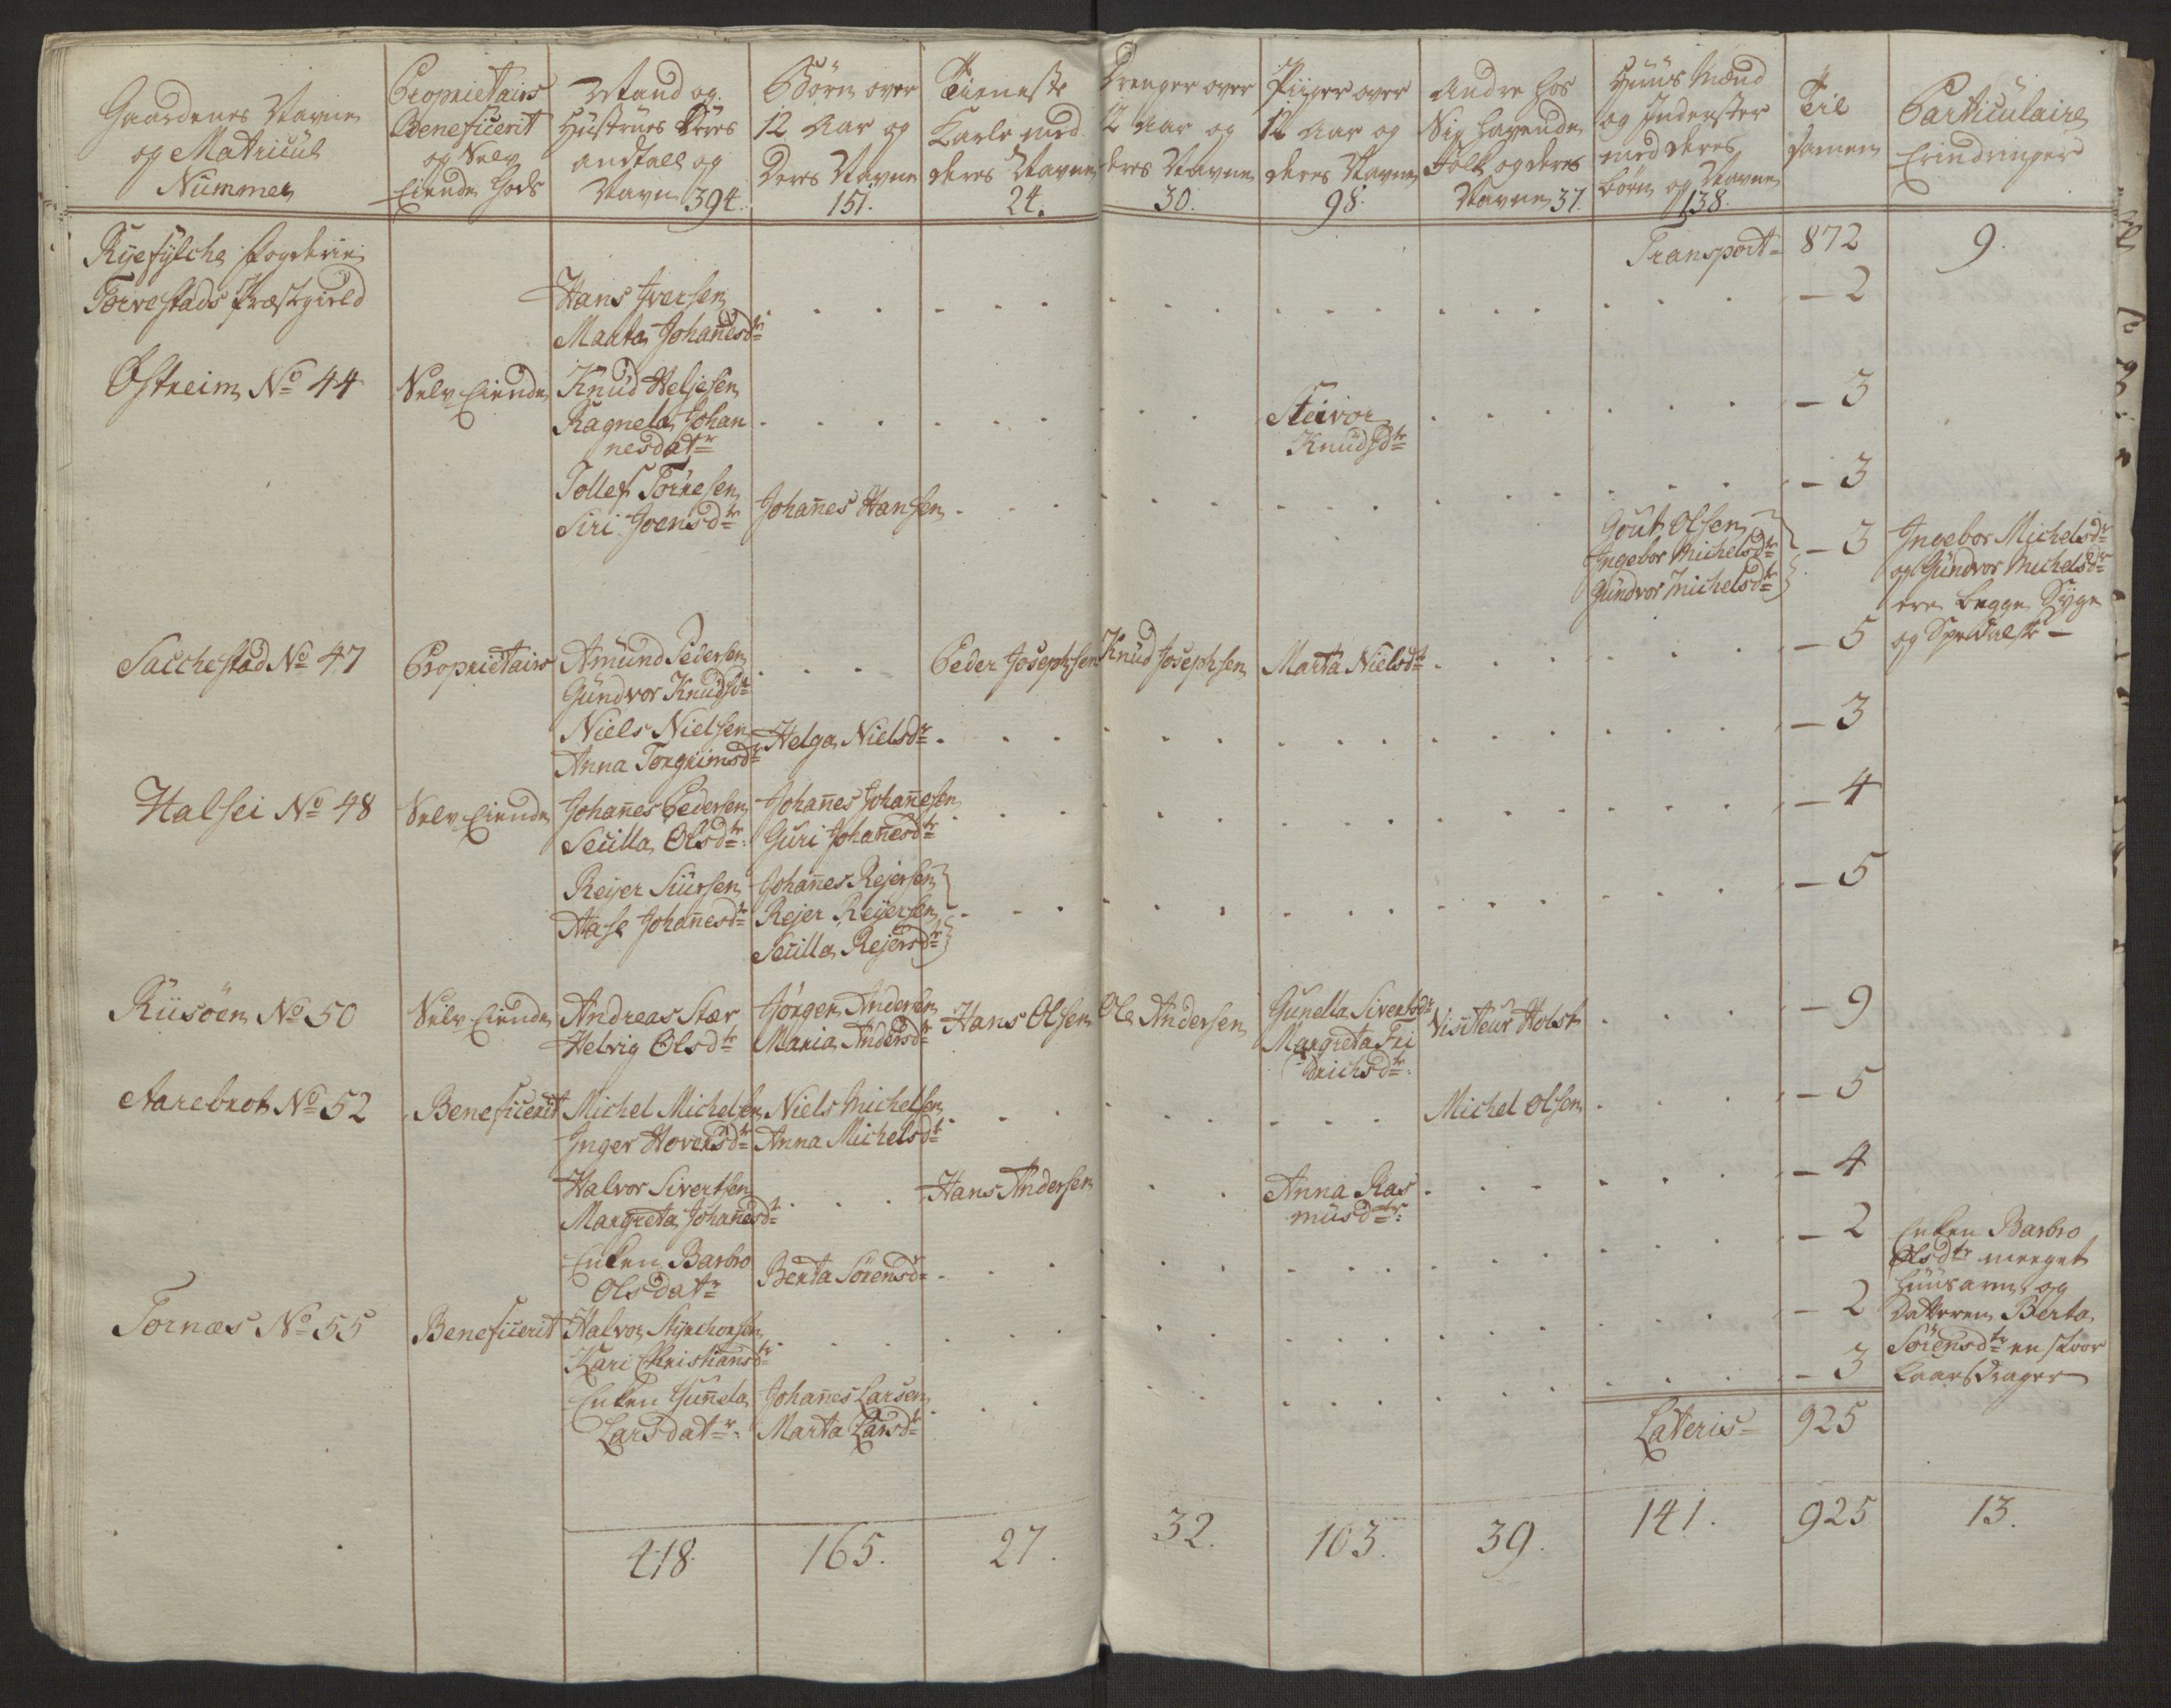 Gaardenes Navne
og Matricul
Nummer
Proprietairs
Beneficerit
og Selv
Eiende Gods
Mand og
Hustrues Deres
andtall og
Navn 394.
Börn over
12 Aar og
Deres Navne
151.
Tieneste
Karle med
deres Navne
24.
Drenger over
12 Aar og
deres Navne
30.
Piiger over
12 Aar og
deres Navne
98.
Andre hos
Sig havende
Folk og deres
Navne 37.
Huus Mænd
og Inderster
med deres
börn og Navne
138.
Til
samen
Particulaire
Erindringer
Ryefylche Fogderie
Torvestads Præstegield
Transport = 872 9.
Hans Iversen
Marta Johañesdtr
– 2
Østreim No 44 Selv Eiende Knud Heljesen
Ragnela Johan
nesdatr
Steivor
Knudsdtr
– 3
Tollef Törresen
Siri Joensdtr
Johañes Hansen
– 3
Gout Olsen
Ingebor Michelsdtr
Gundvor Michelsdtr
– 3
Ingebor Michelsdtr
og Gundvor Michelsdtr
ere begge Syge
og Spedalske –
Sacchestad No 47 Proprietairs Amund Pedersen
Gundvor Knudsdtr
Peder Josephsen Knud Josephsen Marta Nielsdtr – 5
Niels Nielsen
Anna Torgrimsdtr
Helga Nielsdtr
– 3
Halsei No 48 Selv Eiende Johañes Pedersen
Seuilla Olsdtr
Johañes Johañesen
Guri Johañesdtr
– 4
Reijer Siursen
Aase Johañesdtr
Johañes Rejersen
Rejer Reijersen
Seuilla Rejersdtr
– 5
Riisöen No 50 Selv Eiende Andreas Stær
Helvig Olsdtr
Jörgen Andersen
Maria Andersdtr
Hans Olsen Ole Andersen Gunella Sivertsdtr
Margreta Fri
drichsdtr
Visiteur Holst – 9
Aarebrot No 52 Beneficerit Michel Michelsen
Inger Hoversdtr
Niels Michelsen
Anna Michelsdtr
Michel Olsen – 5
Halvor Sivertsen
Margreta Johañesdtr
Hans Andersen Anna Ras
musdtr
– 4
Enken Barbro
Olsdatr
Berta Sörensdtr
– 2
Enken Barbro
Olsdtr meeget
huusarm og
Datteren Berta
Sörensdtr en stoor
Laarsdrager
Tornæs No 55 Beneficerit Halvor Styrchorsen
Kari Christiansdtr
– 2
Enken Guñela
Larsdatr
Johañes Larsen
Marta Larsdtr
– 3
Lateris = 925
418. 165. 27. 32. 103. 39. 141. 925 13.